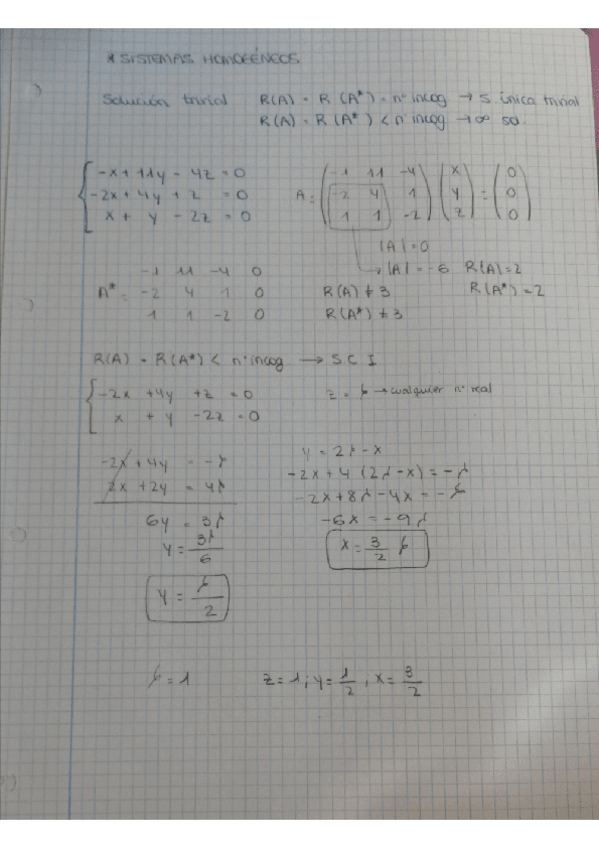 * SISTEMAS HOMOGÉNEOS
Solución trivial R(A) = R(A*) = nº incog → S. única trivial
R(A) = R(A*) < nº incog → ∞ so.
-x + 11y - 4z = 0
-2x + 4y + z = 0
x + y - 2z = 0
A = ( -1 11 -4 ) ( x ) ( 0 )
( -2 4 1 ) ( y ) = ( 0 )
( 1 1 -2 ) ( z ) ( 0 )
|A| = 0
→ |A| = -6 R(A) = 2
-1 11 -4 0
A* = -2 4 1 0
1 1 -2 0
R(A) ≠ 3 R(A*) = 2
R(A*) ≠ 3
R(A) = R(A*) < nº incog → S.C I
-2x + 4y + z = 0
x + y - 2z = 0
z = λ → cualquier nº real
-2x + 4y = -λ
2x + 2y = 4λ
6y = 3λ
y = 3λ/6
y = λ/2
y = 2λ - x
-2x + 4 (2λ - x) = -λ
-2x + 8λ - 4x = -λ
-6x = -9λ
x = 3/2 λ
λ = 1 z = 1; y = 1/2, x = 3/2